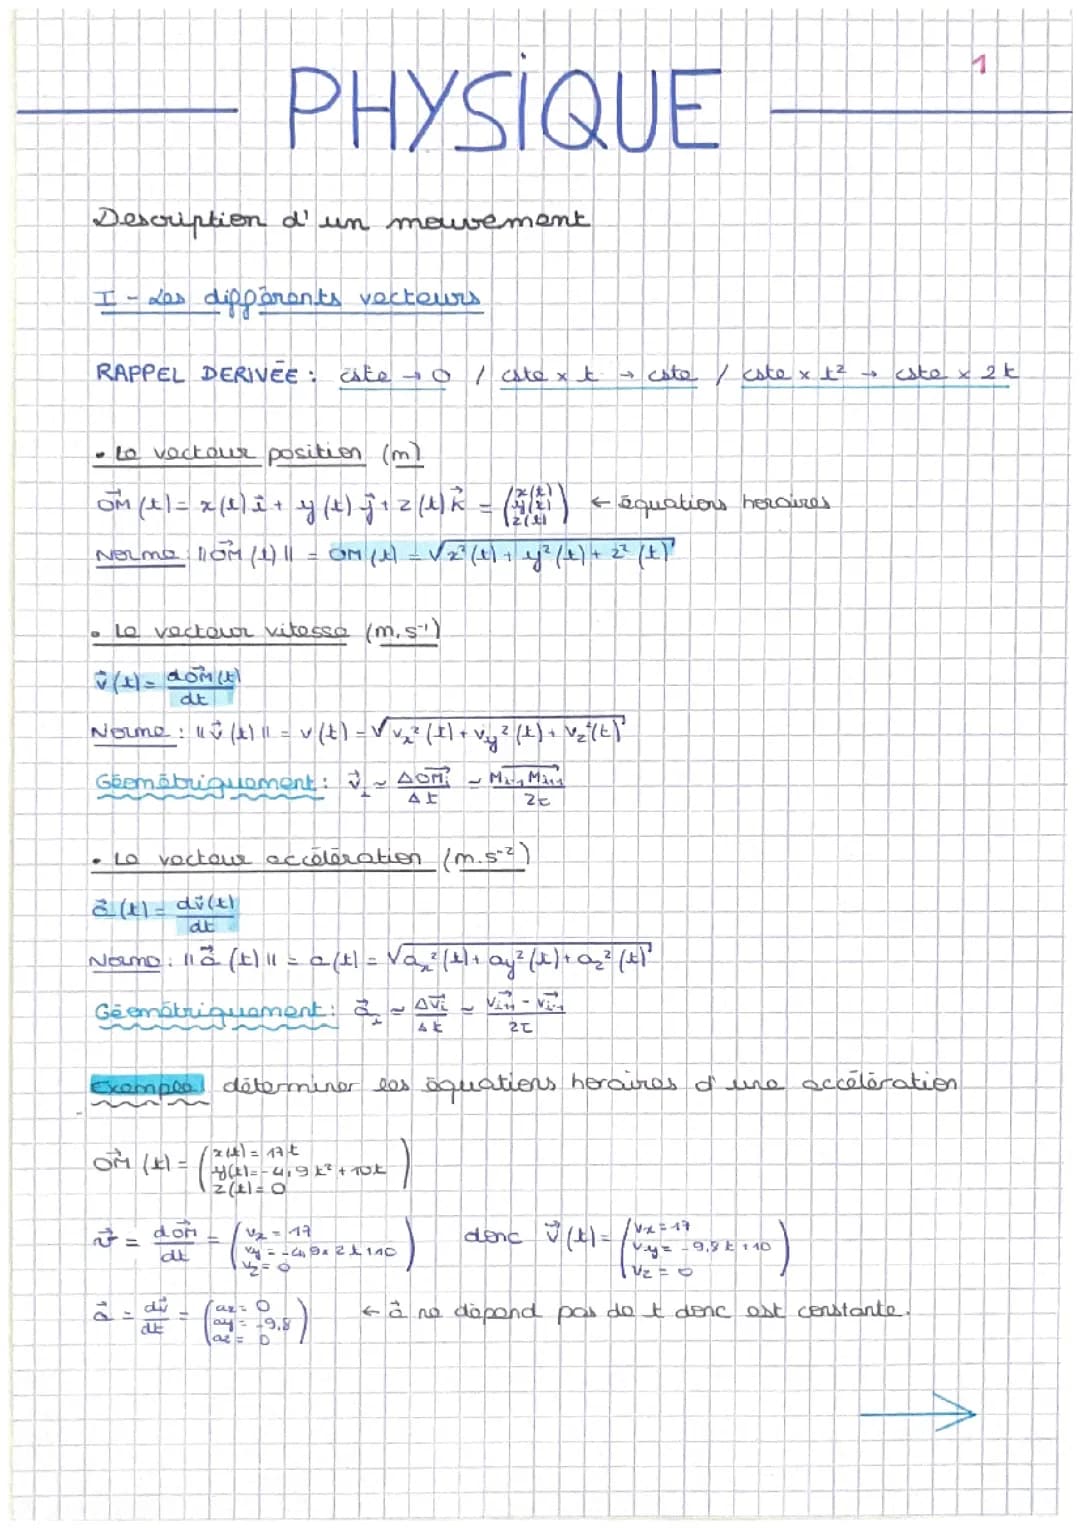 1
PHYSIQUE
Description d'un mouvement
I - Les différents vecteurs
RAPPEL DERIVÉE : cste → 0 / cste x t → cste / cste x t² → cste x 2t
• Le vecteur position (m)
OM⃗(t) = x(t) i⃗ + y(t) j⃗ + z(t) k⃗ = (x(t) y(t) z(t)) ← équations horaires
Norme : ||OM⃗(t)|| = OM(t) = √x²(t) + y²(t) + z²(t)
• Le vecteur vitesse (m.s⁻¹)
v⃗(t) = dOM⃗(t) / dt
Norme : ||v⃗(t)|| = v(t) = √vx²(t) + vy²(t) + vz²(t)
Géométriquement : v⃗i ~ ΔOM⃗i / Δt ~ Mi-1Mi+1 / 2τ
• Le vecteur accélération (m.s⁻²)
a⃗(t) = dv⃗(t) / dt
Norme : ||a⃗(t)|| = a(t) = √ax²(t) + ay²(t) + az²(t)
Géométriquement : a⃗i ~ Δv⃗i / Δt ~ v⃗i+1 - v⃗i-1 / 2τ
Exemple déterminer les équations horaires d'une accélération
OM⃗(t) = (x(t) = 17t y(t) = -4,9t² + 10t z(t) = 0)
v⃗ = dOM⃗ / dt = (vx = 17 vy = -4,9 x 2t + 10 vz = 0) donc v⃗(t) = (vx = 17 vy = -9,8t + 10 vz = 0)
a⃗ = dv⃗ / dt = (ax = 0 ay = -9,8 az = 0) ← a⃗ ne dépend pas de t donc est constante.